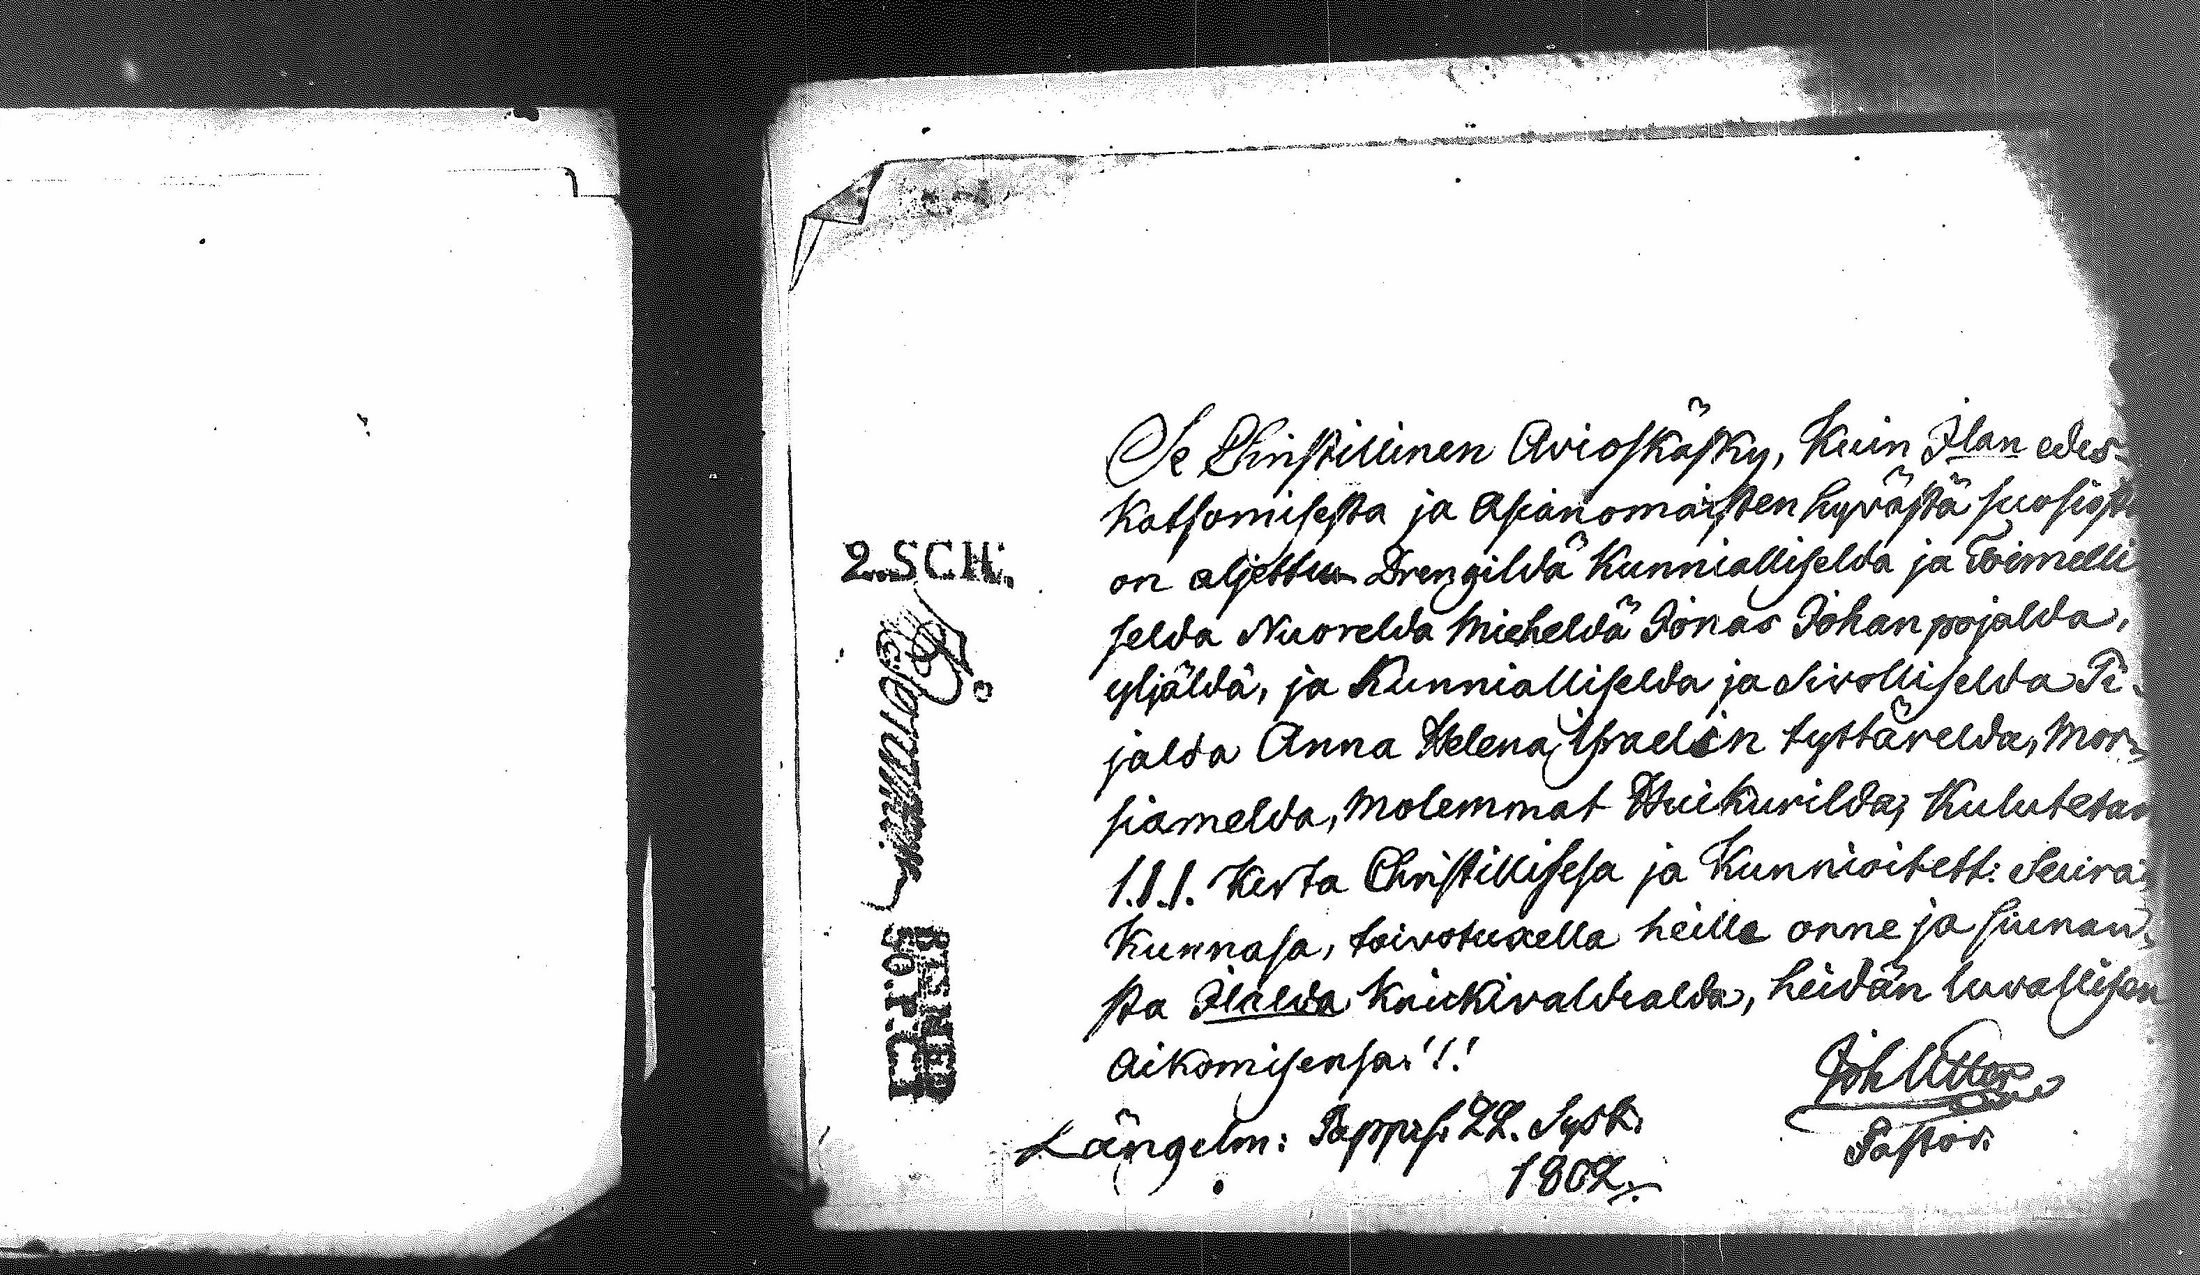 2. SCH.
Se Christillinen Avioskäsky, Kuin Jlan edes-
katsomisesta ja Asianomaisten hyvästä suosiost
on aljettu Drengildä Kunnialliselda ja Toimelli
selda Nuorelda Mieheldä Jonas Johanpojalda,
yljäldä, ja Kunnialliselda ja Sivolliselda Pi-
jalda Anna Helena Israelin tyttärelda, Mor-
siamelda, Molemmat Huikurilda; Kulutetan
1.1.1. Kerta Christillisesa ja Kunnioitett: Seura-
Kunnasa, toivotuxella heille onne ja siunau-
sta Jlalda Kaickivaldialda, heidän luvallisen
Aikomisensa!!!
Joh Utter
Pastor.
Längelm: Pappil: 22. Sysk.
1802.